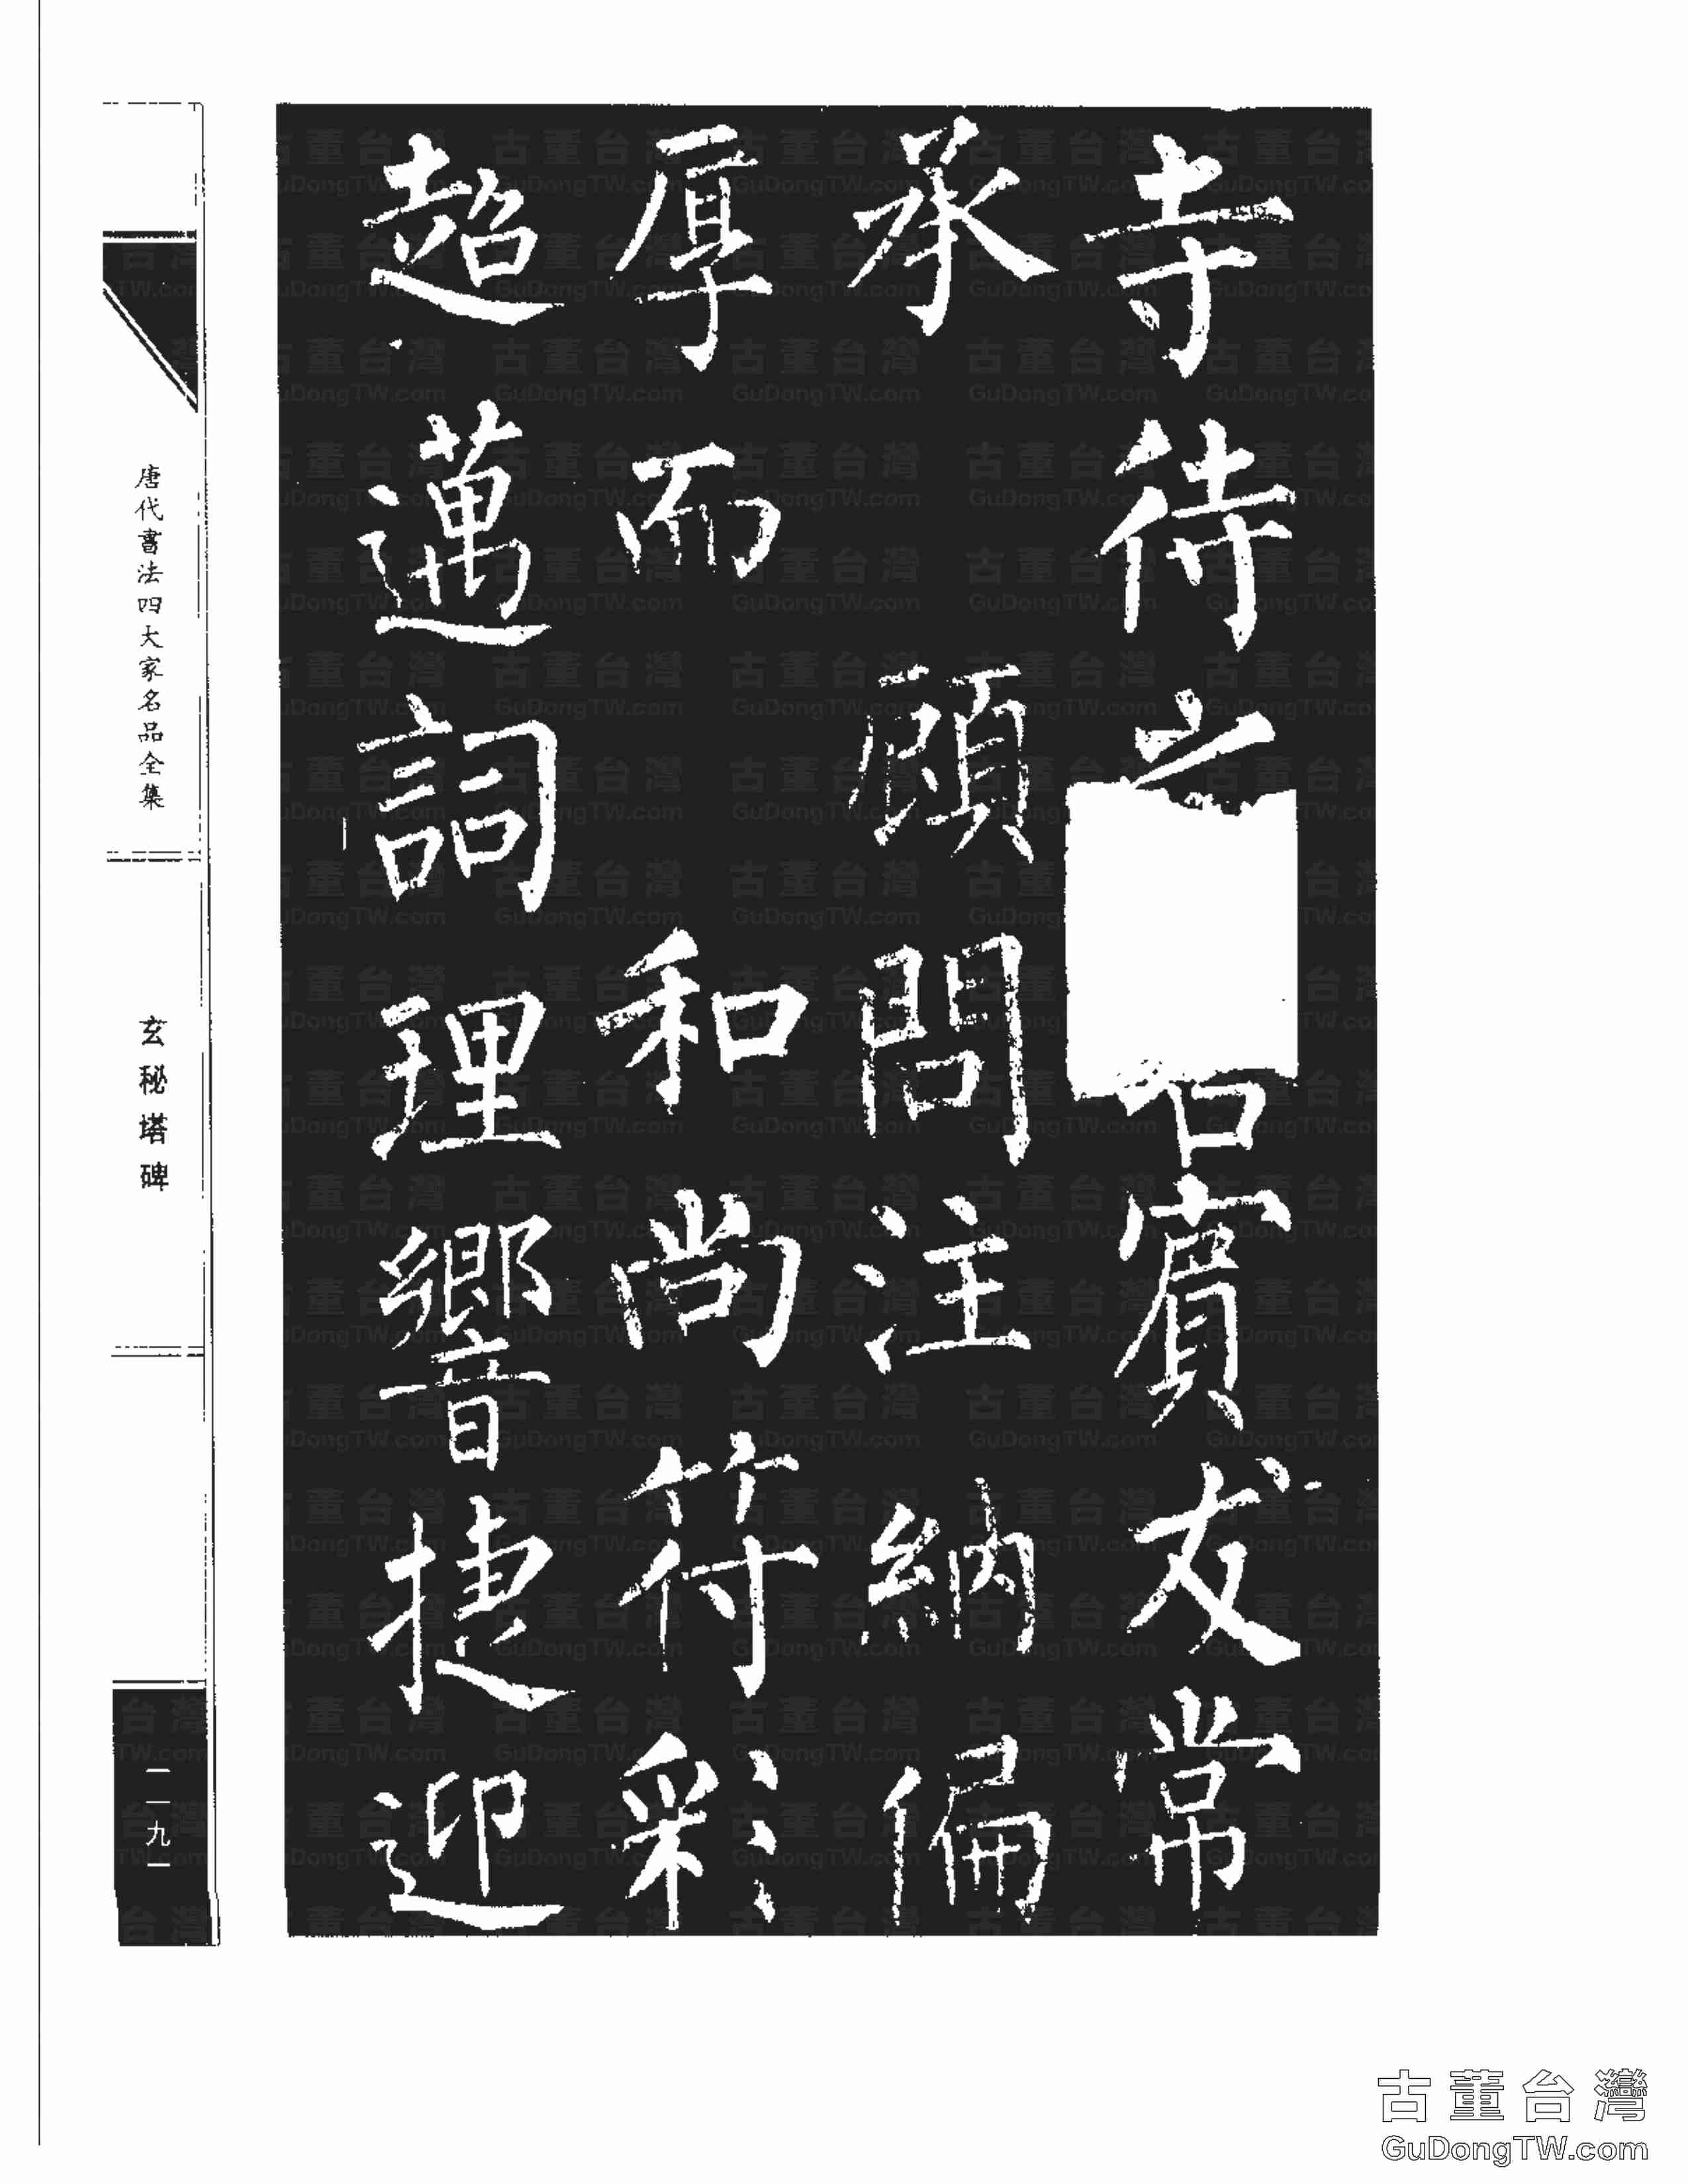 寺待之
賓友常
承
顧問注納偏
厚而
和尚符彩
超邁詞理響捷迎
唐代書法四大家名品全集
玄秘塔碑
一一九一
古董台灣
GuDongTW.com